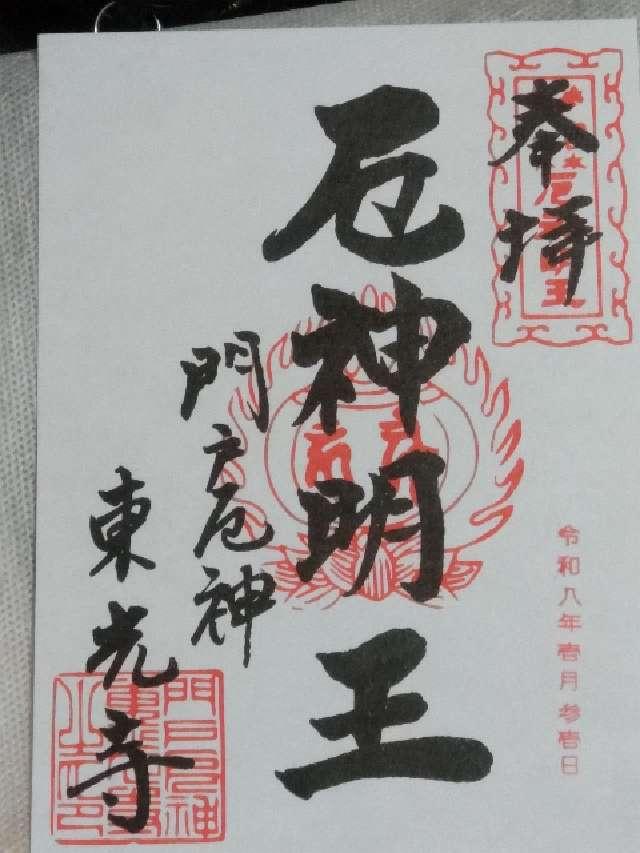 奉拝
令和八年壱月参壱日
厄神明王
門戸厄神
東光寺